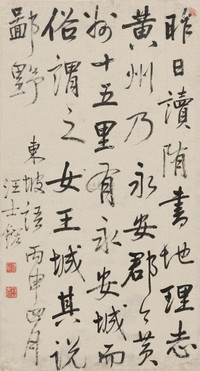 昨日讀隋書地理志
黃州乃永安郡今黃
州十五里有永安城而
俗謂之女王城其說
鄙野
東坡語丙申四月
汪士鋐